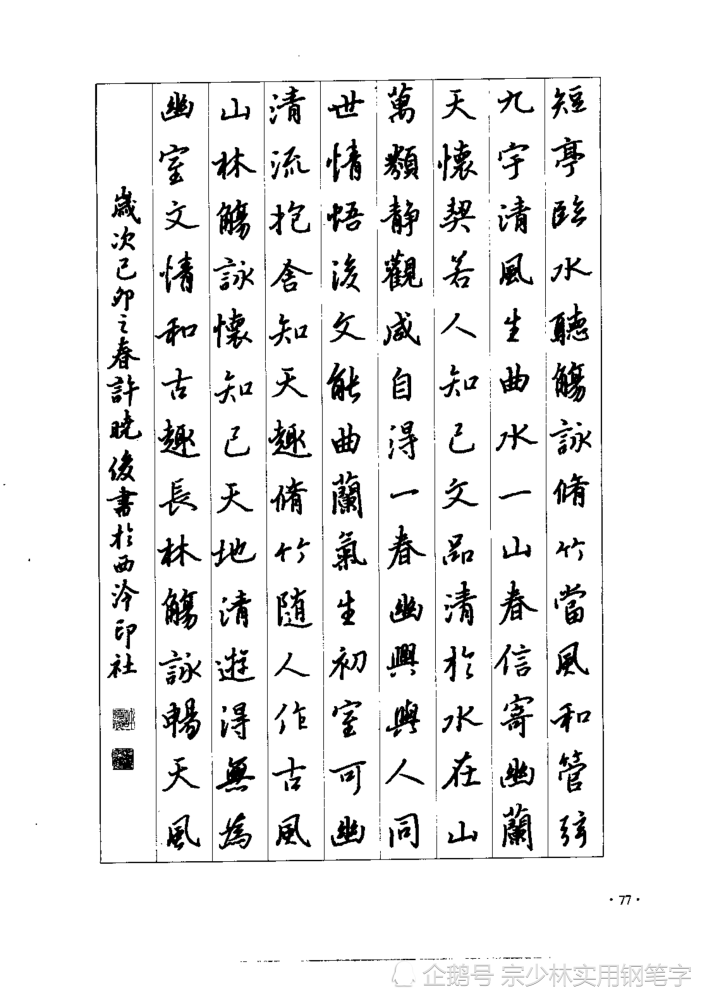 短亭臨水聽觴詠脩竹當風和管弦
九宇清風生曲水一山春信寄幽蘭
天懷契若人知己文品清於水在山
萬類靜觀咸自得一春幽興與人同
世情悟後文能曲蘭氣生初室可幽
清流抱舍知天趣脩竹隨人作古風
山林觴詠懷知己天地清遊得無為
幽室文情和古趣長林觴詠暢天風
歲次己卯之春許曉俊書於西泠印社
·77·
企鹅号 宗少林实用钢笔字